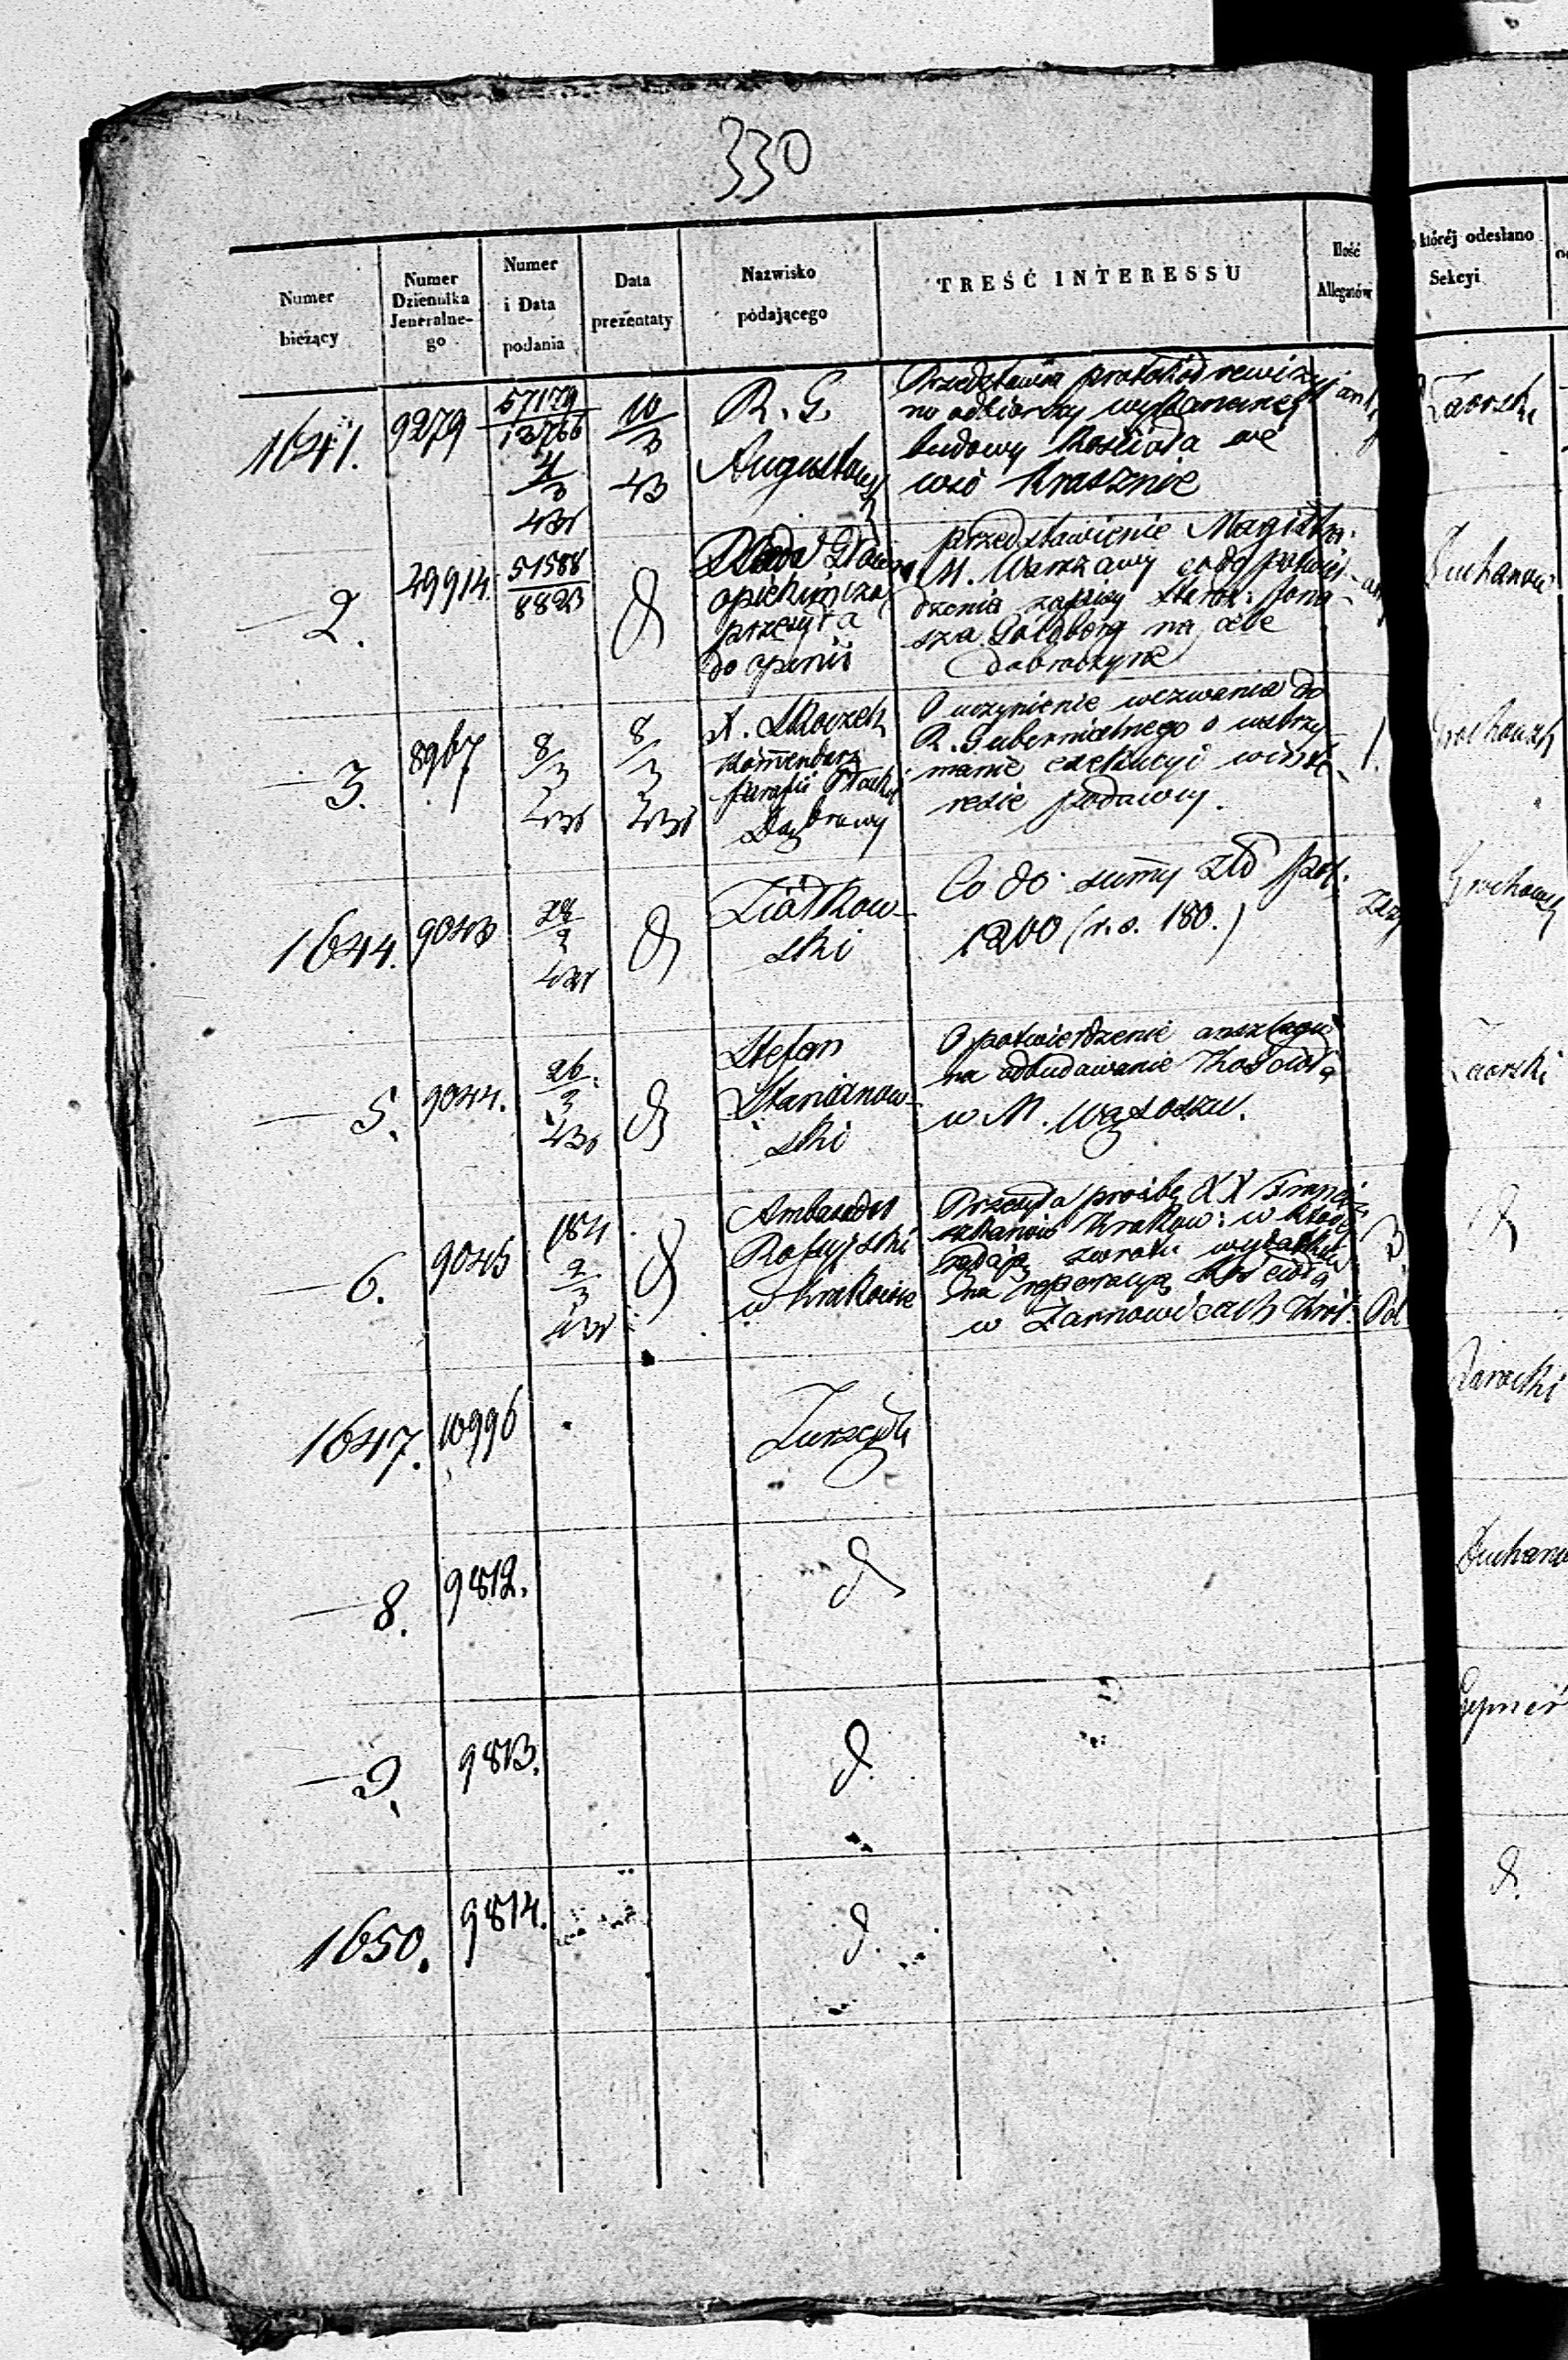 330
Numer bieżący
Numer Dziennika Jeneralne-go
Numer i Data podania
Data prezentaty
Nazwisko podającego
TREŚĆ INTERESSU
Ilość Allegatów
któréj odesłano Sekcyi
1641.
9279
57179
13766
4/3
43
10/3
43
R. G.
Augustow
Przedstawia protokół rewizyi
no odbiorczy wykonanej
budowy Kościoła we
wsi Krasznie
Zaorski
2.
29914.
51588
8823
d
Rada Główna
opiekuńcza
przesyła
do opinii
przedstawienie Magistra:
M. Warszawy co do potwier-
dzenia zapisu Staroz: Jona-
sza Goldberg na cele
dobroczynne
3.
8967
8/3
8/3
X. Skoczek
Kommendarz
parafii
Dąbrowy
O uczynienie wezwania do
R. Gubernialnego o wstrzy-
manie exekucyi w inte-
resie podawcy.
1.
1644.
9043
d
Ziółkow-
ski
Co do summy złp pol:
1200 (r. s. 180.)
Grochowski
5.
9044.
26/2
d
Stefan
Stanianow-
ski
O potwierdzenie anszlagu
na odbudowanie Kościoła
w M. Wąsoszu.
Zaorski
6.
9045
184
2/3
d
Ambasador
Rossyjski
w Krakowie
Przesyła prośbę XX Franci-
szkanów Krakow: w której
żądają zwrotu wydatków
na reperacyą Kościoła
w Żarnowicach Król:
Pol
3
d
1647.
10996
Zurzędu
8.
9812.
d
9.
9813.
d.
1650.
9814.
d.
d.